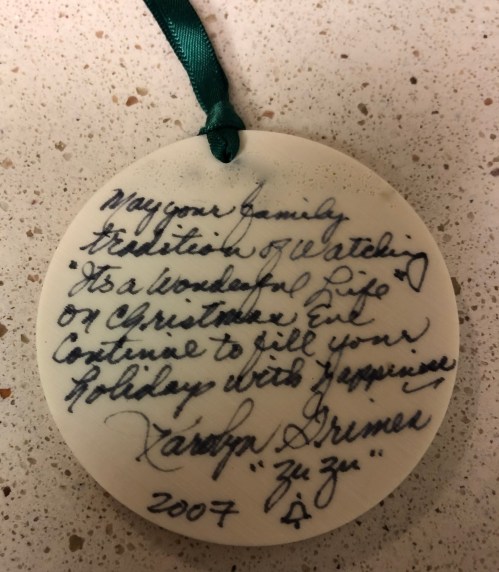 May your family
tradition of watching
"Its a Wonderful Life"
on Christmas Eve
Continue to fill your
holidays with happiness
Karolyn Grimes
"Zu Zu"
2007